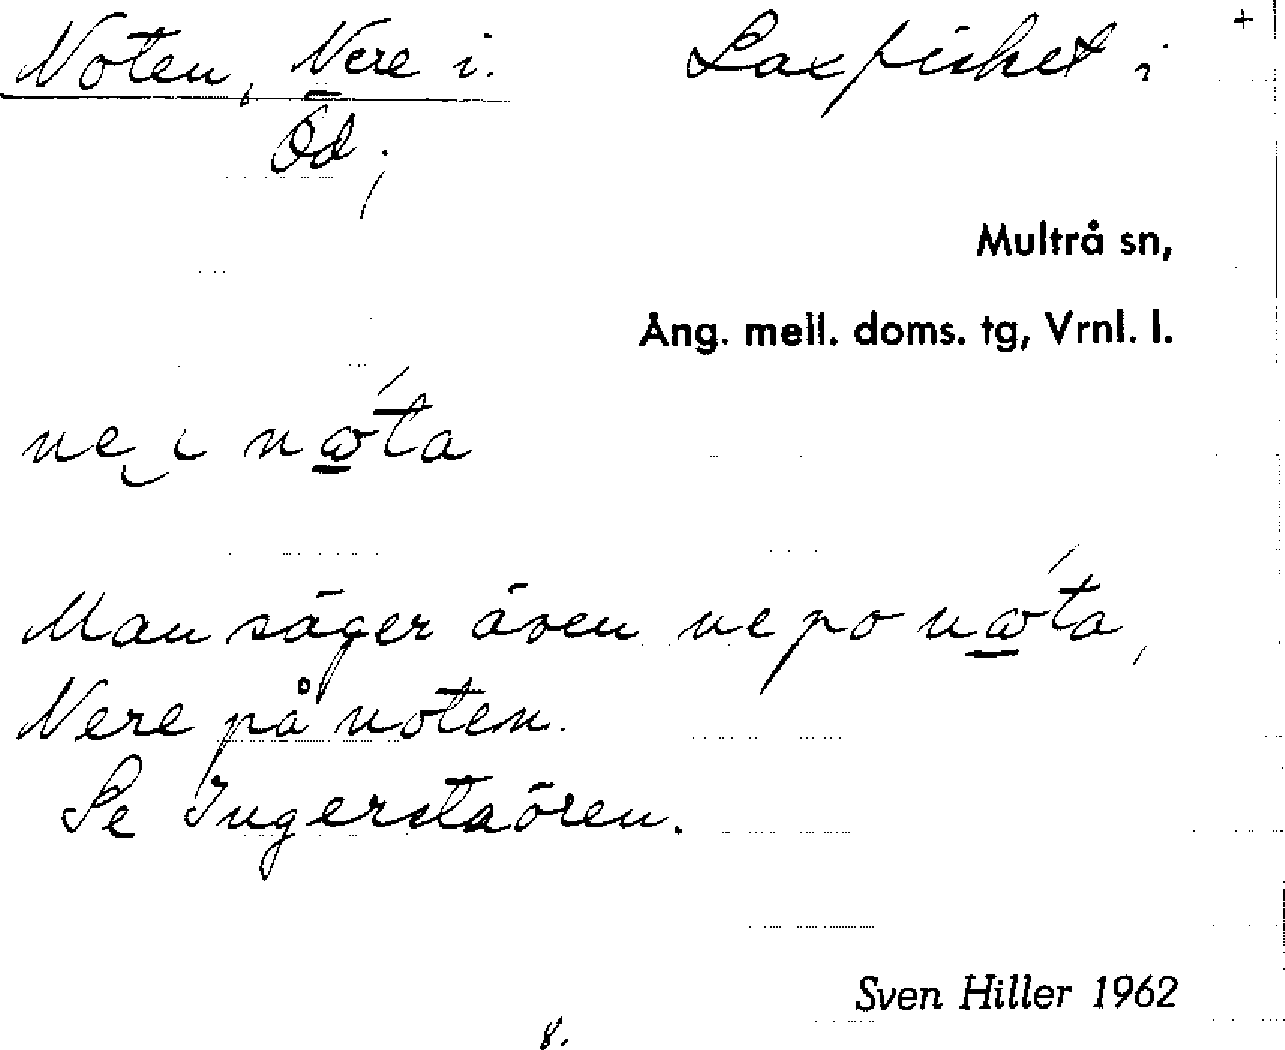 Noten, Nere i. Laxfisket i +
Öd,
Multrå sn,
Ång. mell. doms. tg, Vrnl. l.
ne‿i nǝta
Man säger även ne po nǝta,
Nere på noten.
Se Ingerstaören.
Sven Hiller 1962
8.